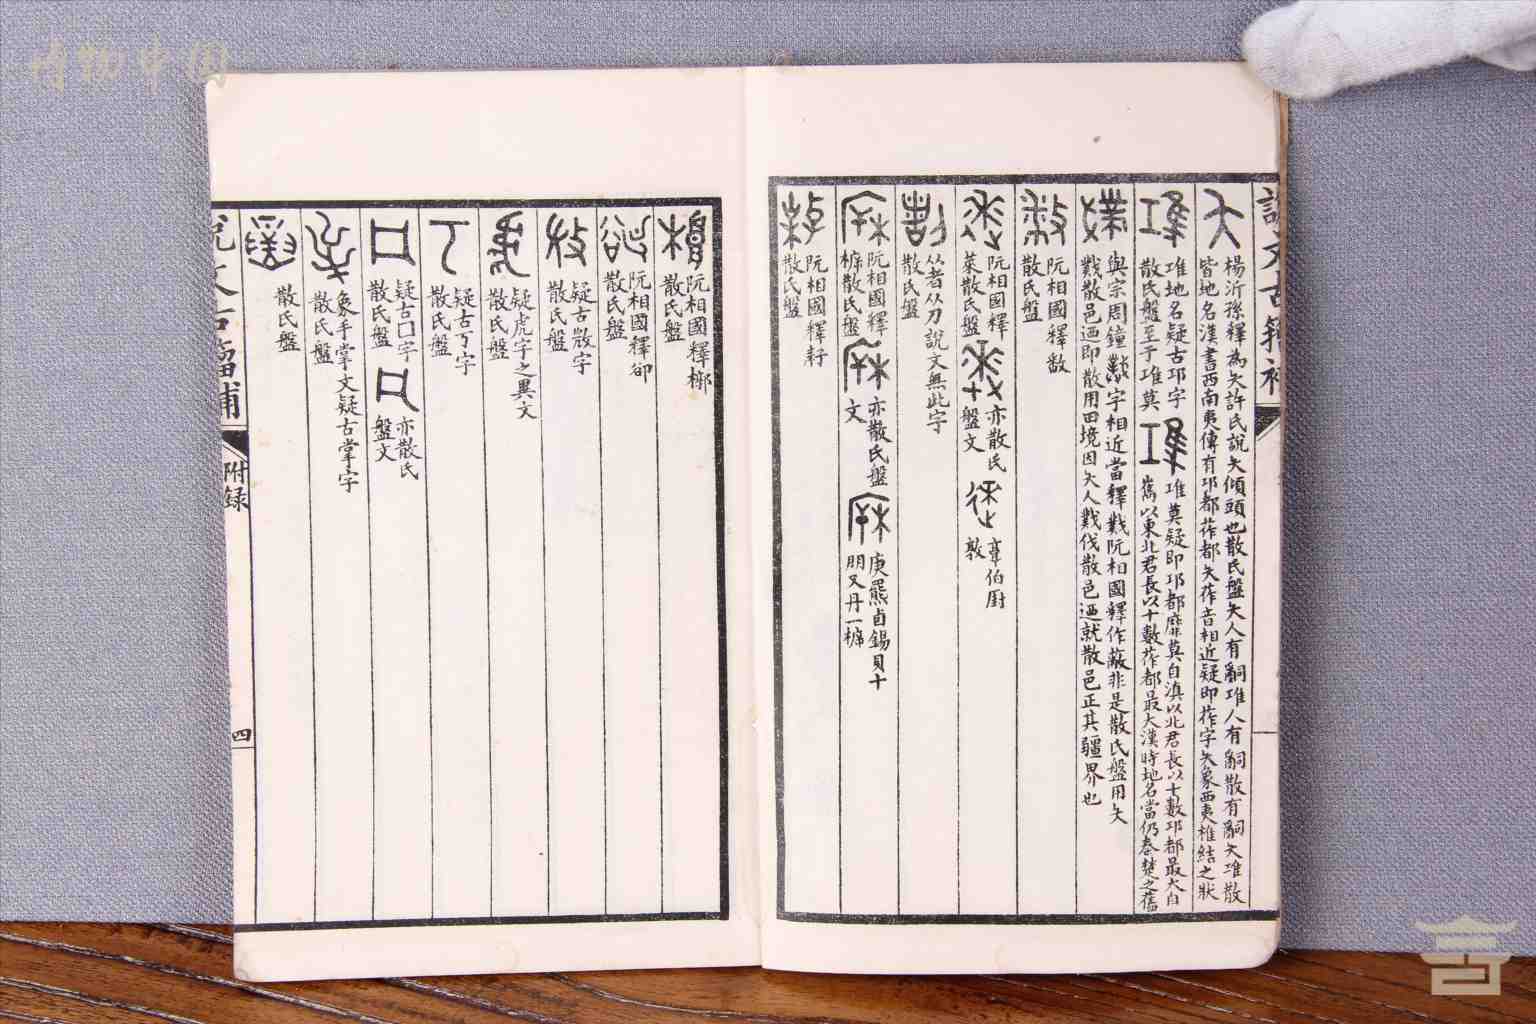 說文古籀補
楊沂孫釋為夨許氏說夨傾頭也散氏盤夨人有嗣㻎人有嗣散有嗣夨㻎散
皆地名漢書西南夷傳有邛都莋都夨莋音相近疑即莋字夨象西夷椎結之狀
㻎地名疑古邛字
散氏盤至于㻎莫
㻎莫疑即邛都靡莫自滇以北君長以十數邛都最大自
嶲以東北君長以十數莋都最大漢時地名當仍秦楚之舊
與宗周鐘字相近當釋戣阮相國釋作蔽非是散氏盤用夨
散邑迺即散用田境因夨人伐散邑迺就散邑正其疆界也
阮相國釋敖
散氏盤
阮相國釋
萊散氏盤
亦散氏
盤文
臺伯廚
敦
从者从刀說文無此字
散氏盤
阮相國釋
㯤散氏盤
亦散氏盤
文
庚羆卣錫貝十
朋又丹一㯤
阮相國釋耔
散氏盤
阮相國釋㮋
散氏盤
阮相國釋卻
散氏盤
疑古散字
散氏盤
疑虎字之異文
散氏盤
疑古丁字
散氏盤
疑古囗字
散氏盤
亦散氏
盤文
象手掌文疑古掌字
散氏盤
散氏盤
說文古籀補
附録
四